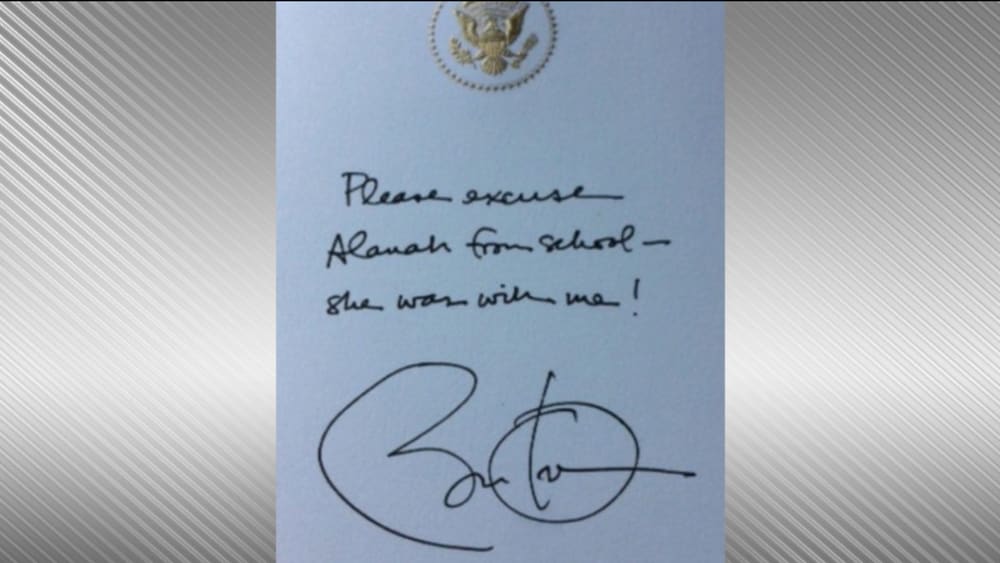 Please excuse
Alanah from school –
she was with me!